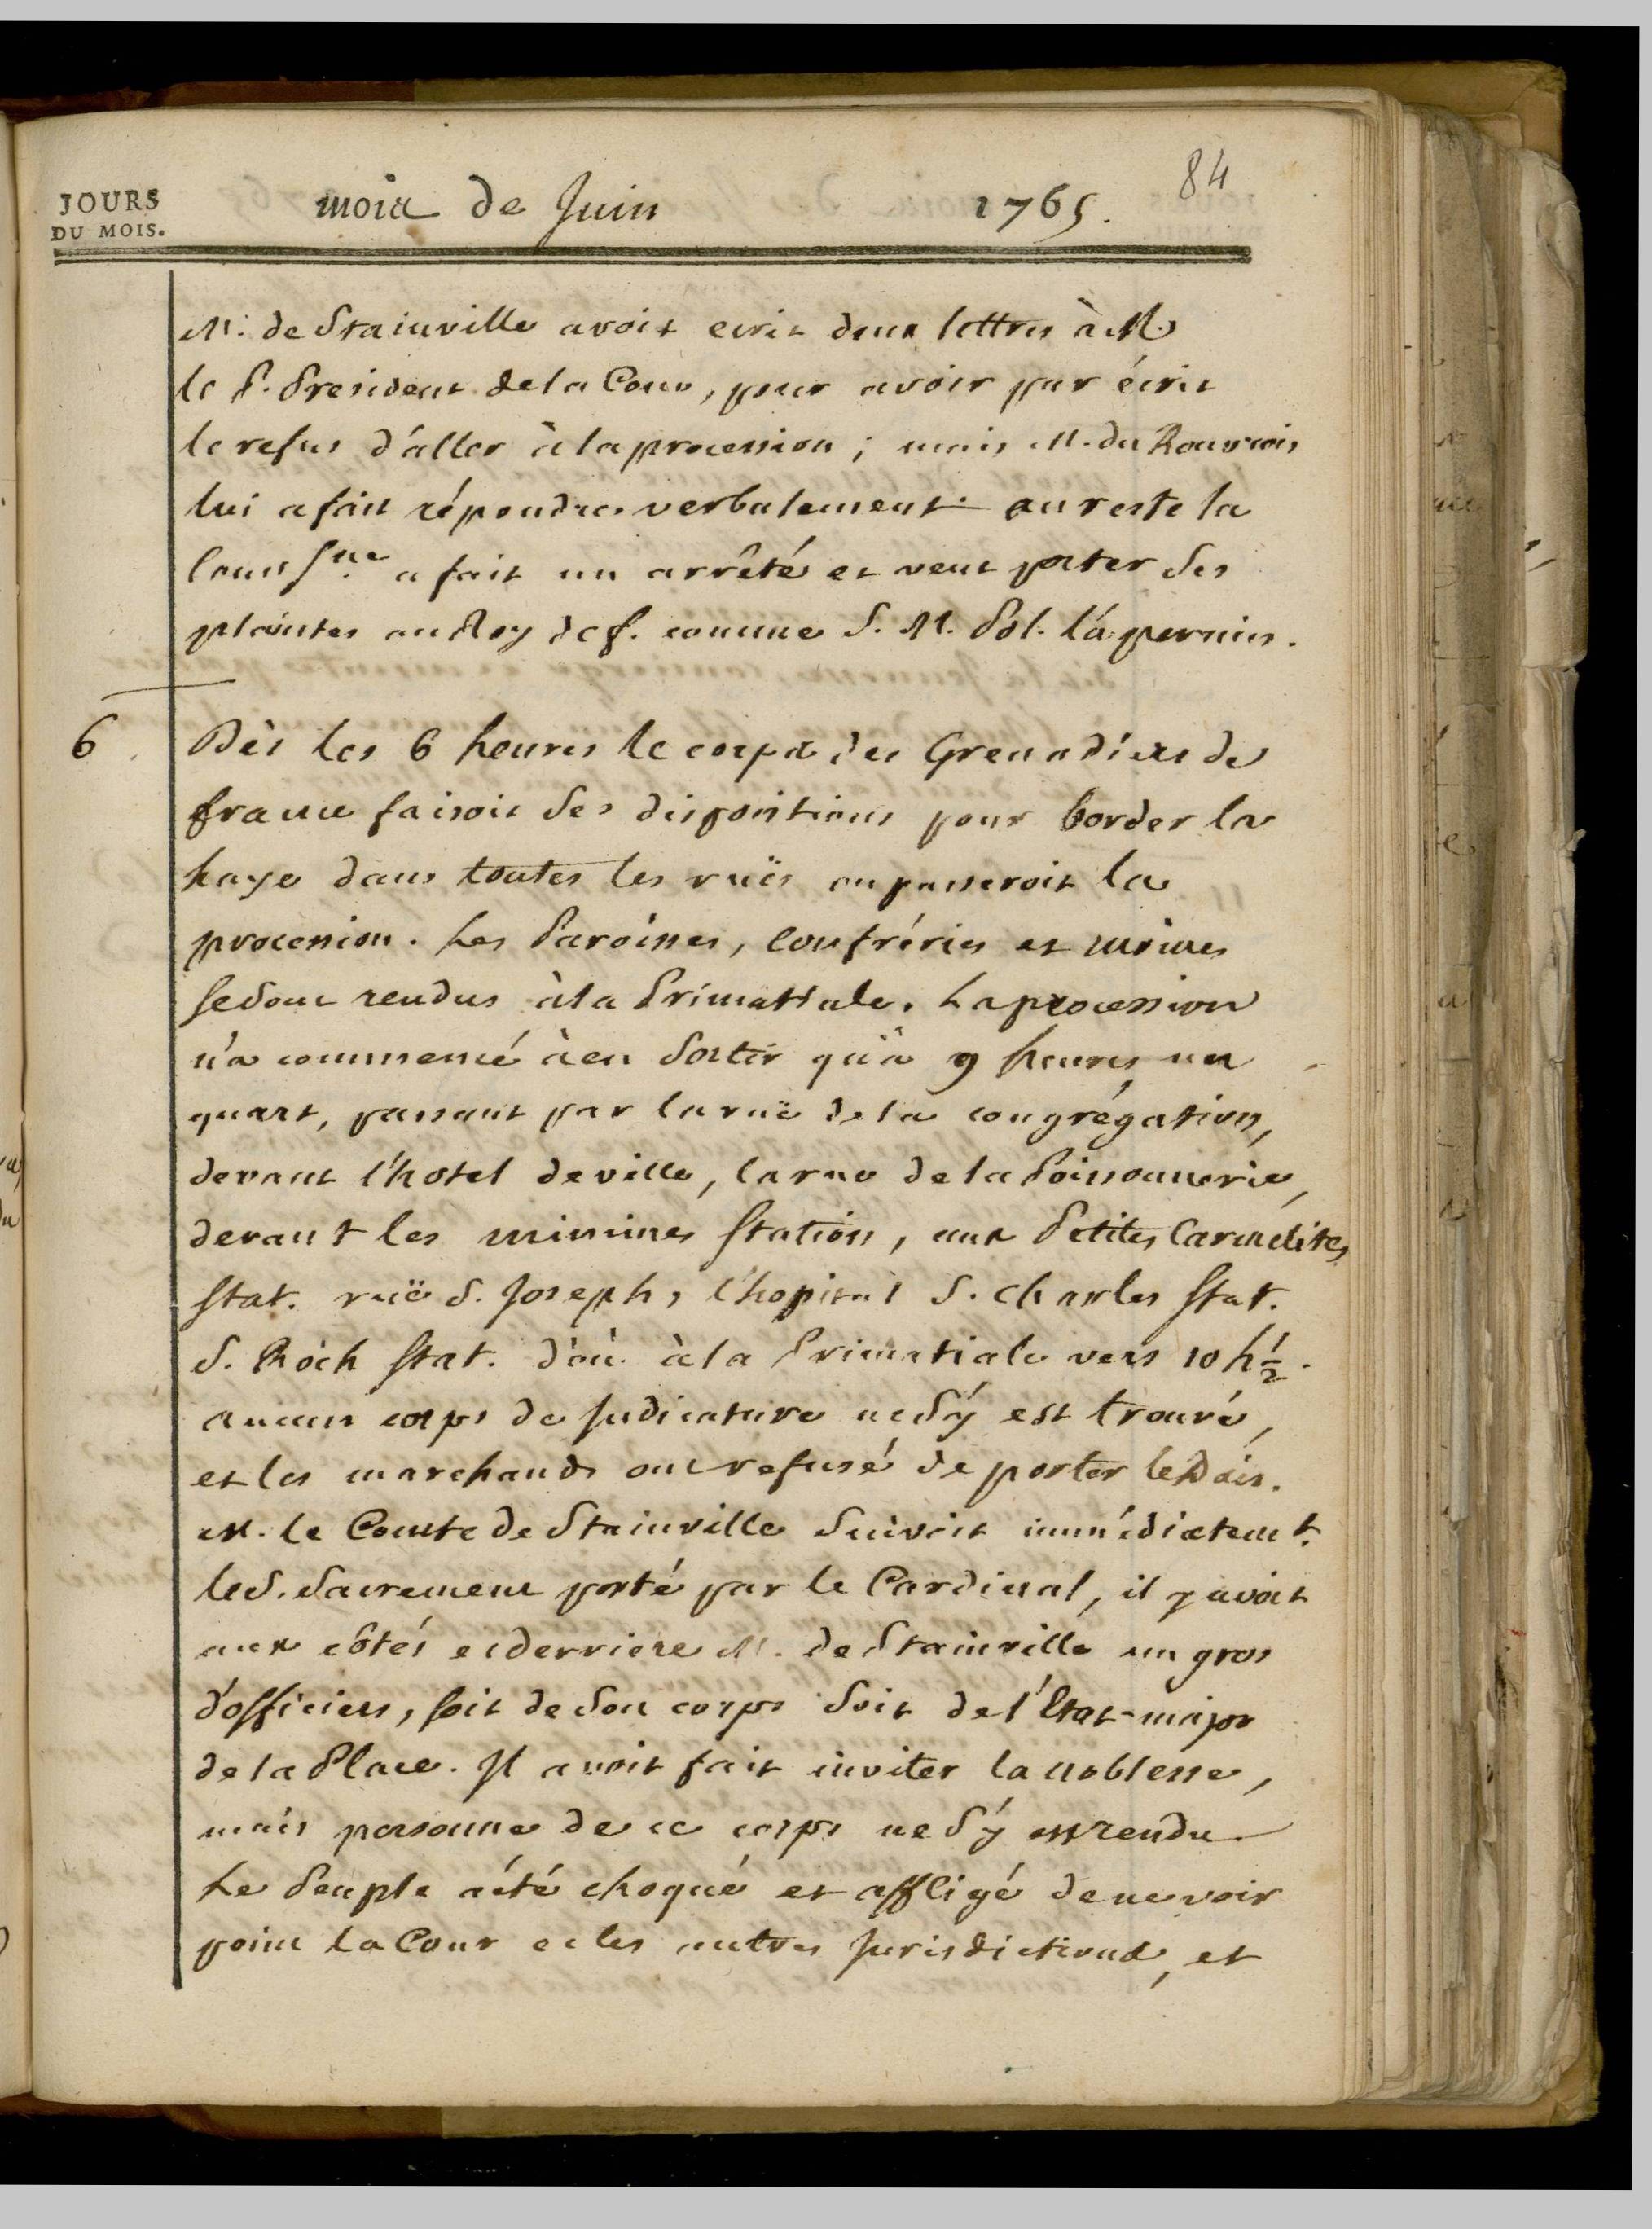 84
JOURS
DU MOIS.
mois de Juin 1765.
M. de Stainville avoit ecrit deux lettres à M.
le P. President de la Cour, pour avoir par écrit
le refus d'aller à la procession ; mais M. du Rouvrois
lui a fait répondre verbalement. au reste la
Cour Sne a fait un arrêté et veut porter ses
plaintes au Roy de f. comme S. M. Pol. l'a permis.
6 Dès les 6 heures le corps des Grenadiers de
france faisoit ses dispositions pour border la
haye dans toutes les ruës ou passeroit la
procession. Les Paroisses, Confréries et moines
se sont rendus à la Primatiale. La procession
n'a commencé à en sortir qu'à 9 heures un
quart, passant par la ruë de la congrégation,
devant l'hotel de ville, la rue de la Poissonnerie,
devant les minimes Station, aux Petites Carmelites
Stat. ruë S. Joseph, l'hopital S. Charles Stat.
S. Roch Stat. d'où à la Primatiale vers 10 h 1/2.
aucun corps de Judicature ne s'y est trouvé,
et les marchands ont refusé de porter le Dais.
M. le Comte de Stainville suivoit immédiatemt.
le S. Sacrement porté par le Cardinal, il y avoit
aux côtés et derriere M. de Stainville un gros
d'officiers, soit de son corps soit de l'Etat-major
de la Place. Il avoit fait inviter la noblesse,
mais personne de ce corps ne s'y est rendu.
Le Peuple a été choqué et affligé de ne voir
point la Cour et les autres Jurisdictions, et